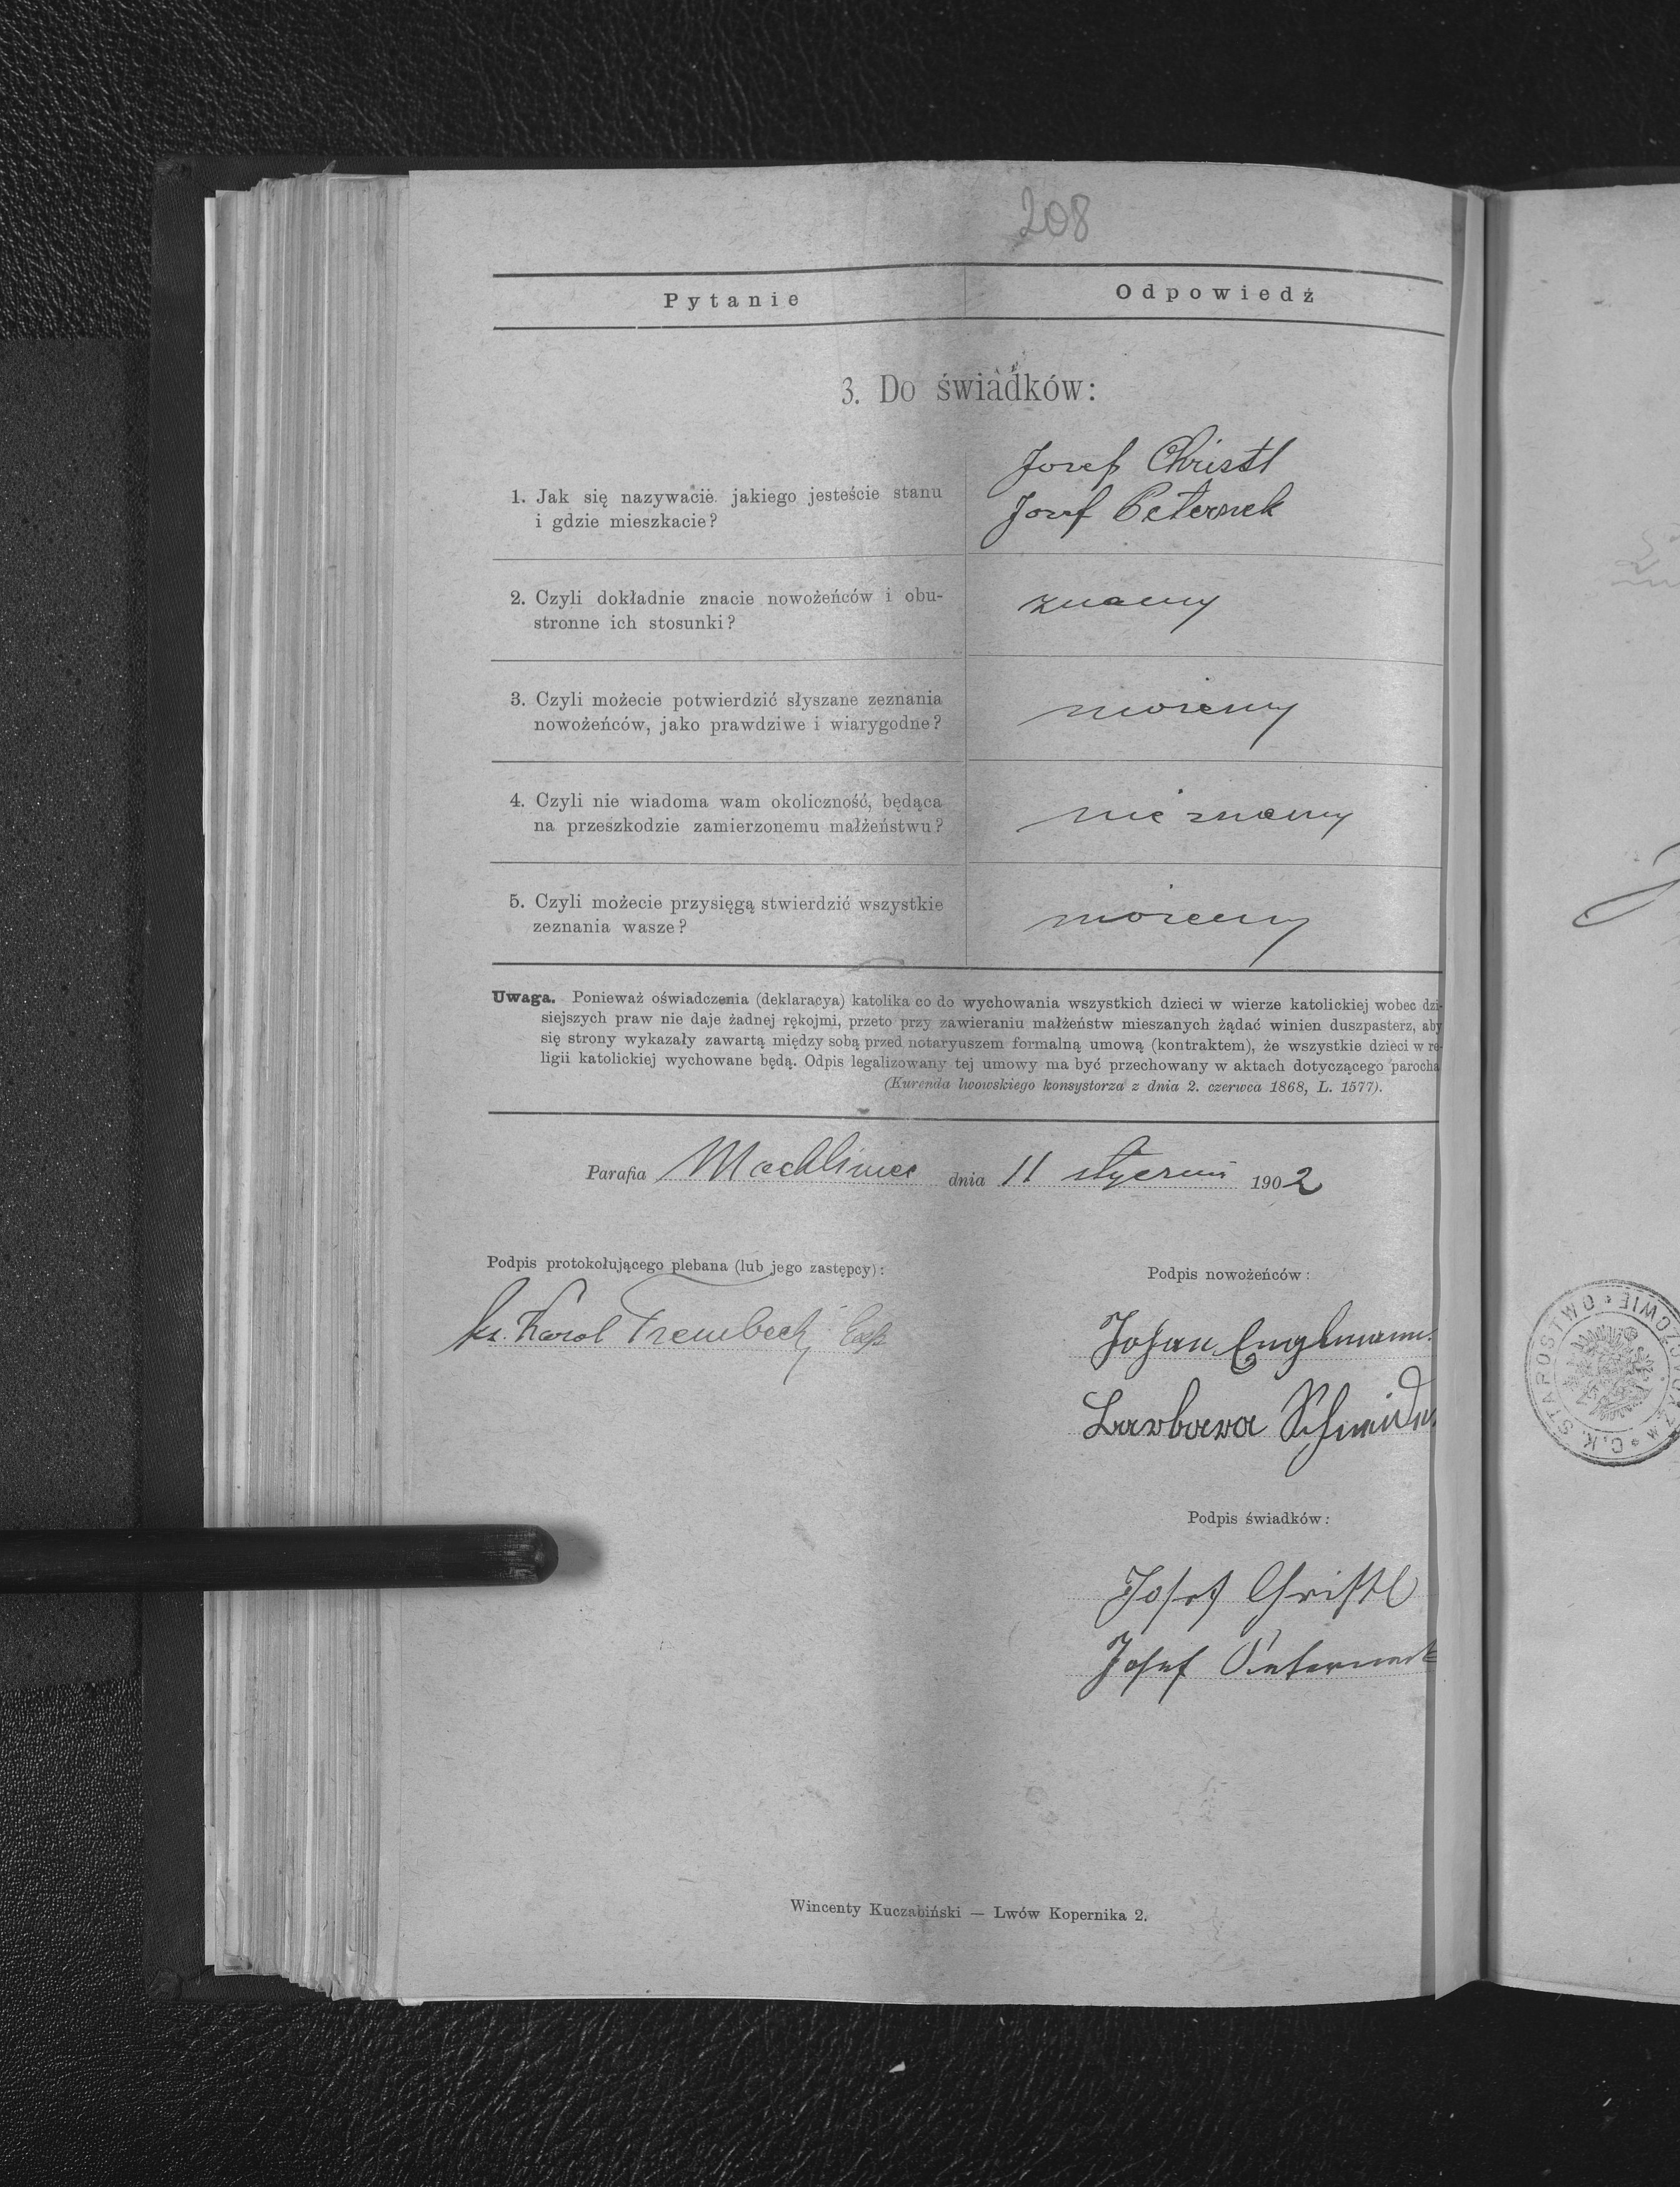 208
Pytanie Odpowiedź
3. Do świadków:
1. Jak się nazywacie jakiego jesteście stanu
i gdzie mieszkacie?
Josef Christl
Josef Peternek
2. Czyli dokładnie znacie nowożeńców i obu-
stronne ich stosunki?
znamy
3. Czyli możecie potwierdzić słyszane zeznania
nowożeńców, jako prawdziwe i wiarygodne?
możemy
4. Czyli nie wiadoma wam okoliczność, będąca
na przeszkodzie zamierzonemu małżeństwu?
nie znamy
5. Czyli możecie przysięgą stwierdzić wszystkie
zeznania wasze?
możemy
Uwaga. Ponieważ oświadczenia (deklaracya) katolika co do wychowania wszystkich dzieci w wierze katolickiej wobec dzi-
siejszych praw nie daje żadnej rękojmi, przeto przy zawieraniu małżeństw mieszanych żądać winien duszpasterz, aby
się strony wykazały zawartą między sobą przed notaryuszem formalną umową (kontraktem), że wszystkie dzieci w re-
ligii katolickiej wychowane będą. Odpis legalizowany tej umowy ma być przechowany w aktach dotyczącego parocha
(Kurenda lwowskiego konsystorza z dnia 2. czerwca 1868, L. 1577).
Parafia Machliniec dnia 11 stycznia 1902
Podpis protokołującego plebana (lub jego zastępcy):
ks. Karol Trembecki Exp
Podpis nowożeńców:
Johan Englmann
Barbara Schmid
Podpis świadków:
Josef Christl
Josef Peternek
Wincenty Kuczabiński — Lwów Kopernika 2.
C.K. STAROSTWO